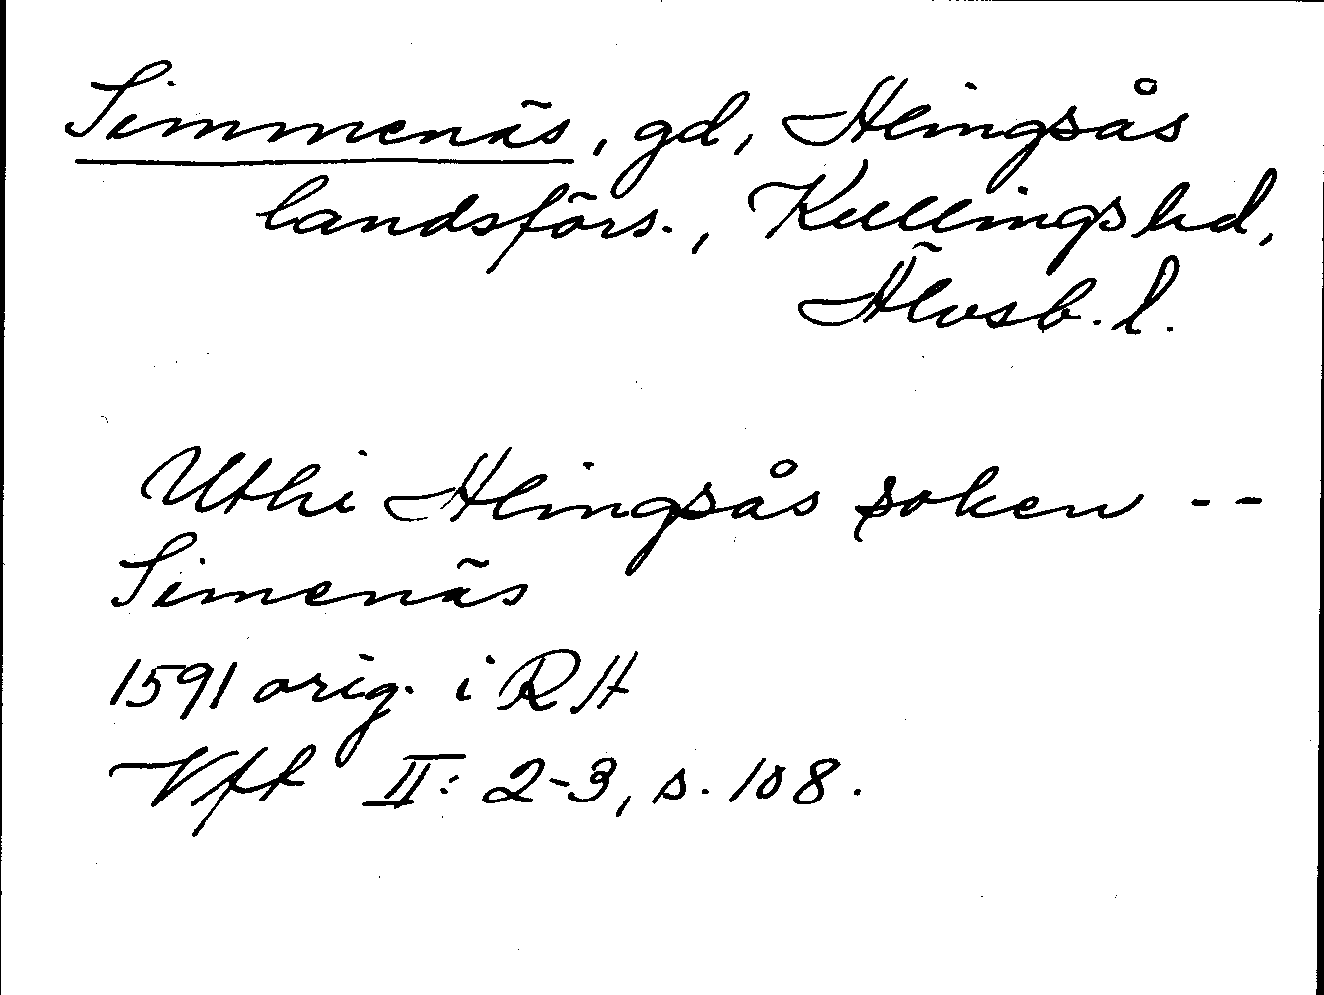 Simmenäs, gd, Alingsås
landsförs., Kullings hd,
Älvsb. l.
Uthi Alingsås soken --
Simenäs
1591 orig. i RA
Vft II: 2-3, s. 108.